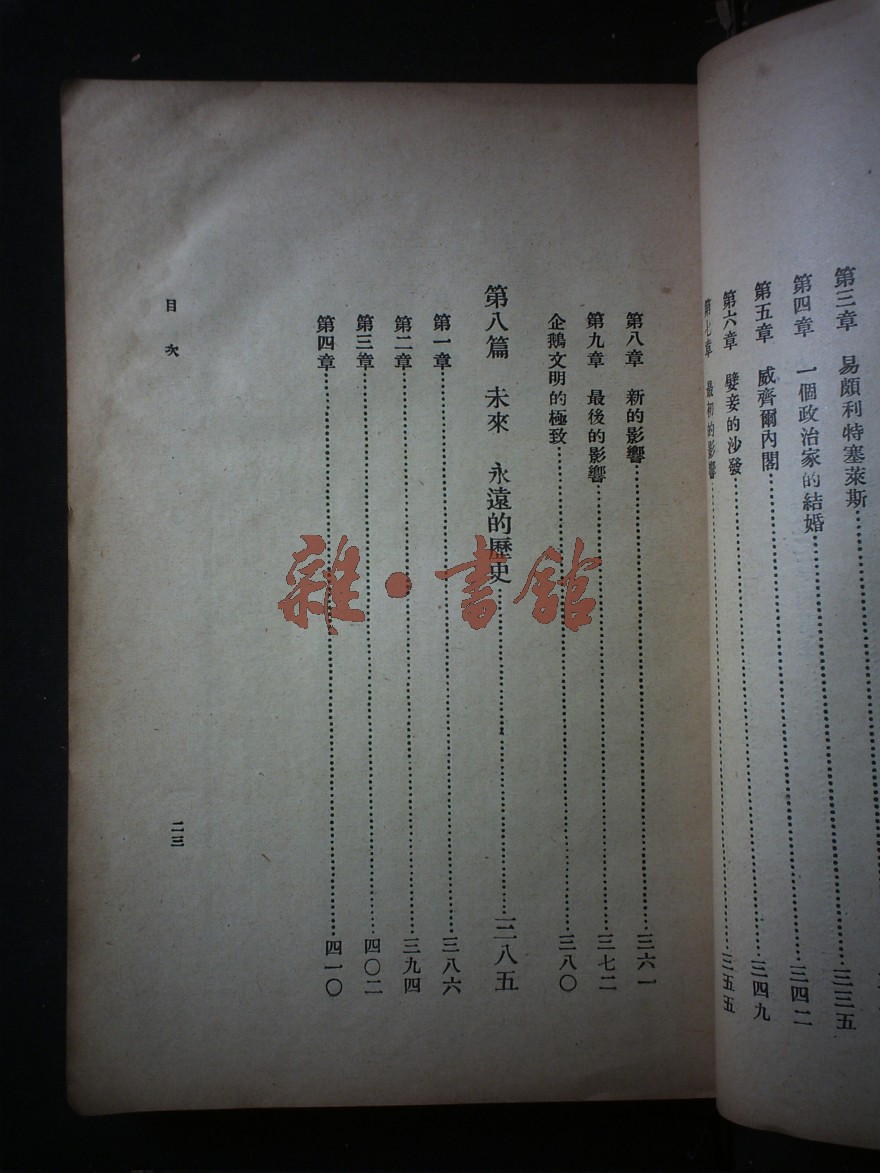 第三章　易頗利特塞萊斯……三三五
第四章　一個政治家的結婚……三四二
第五章　威齊爾內閣……三四九
第六章　嬖妾的沙發……三五五
第七章　最初的影響……
第八章　新的影響……三六一
第九章　最後的影響……三七二
企鵝文明的極致……三八〇
第八篇　未來　永遠的歷史……三八五
第一章……三八六
第二章……三九四
第三章……四〇二
第四章……四一〇
目次
二三
雜·書館